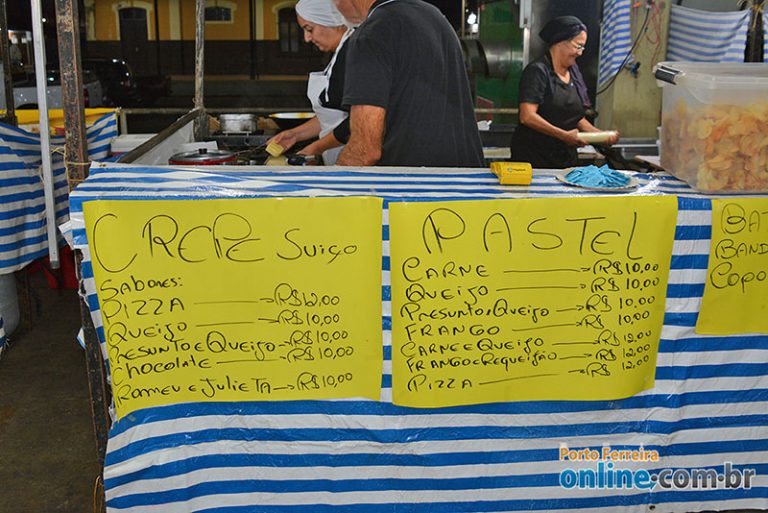 CREPE SUIÇO
SABORES:
PIZZA R$12,00
QUEIJO R$10,00
PRESUNTO E QUEIJO R$10,00
CHOCOLATE R$10,00
ROMEU e JULIETA R$10,00
PASTEL
CARNE R$10,00
QUEIJO R$10,00
PRESUNTO E QUEIJO R$10,00
FRANGO R$ 10,00
CARNE E QUEIJO R$12,00
FRANGO E REQUEIJÃO R$ 12,00
PIZZA R$ 12,00
BAT
BAND
COPO
Porto Ferreira
online.com.br